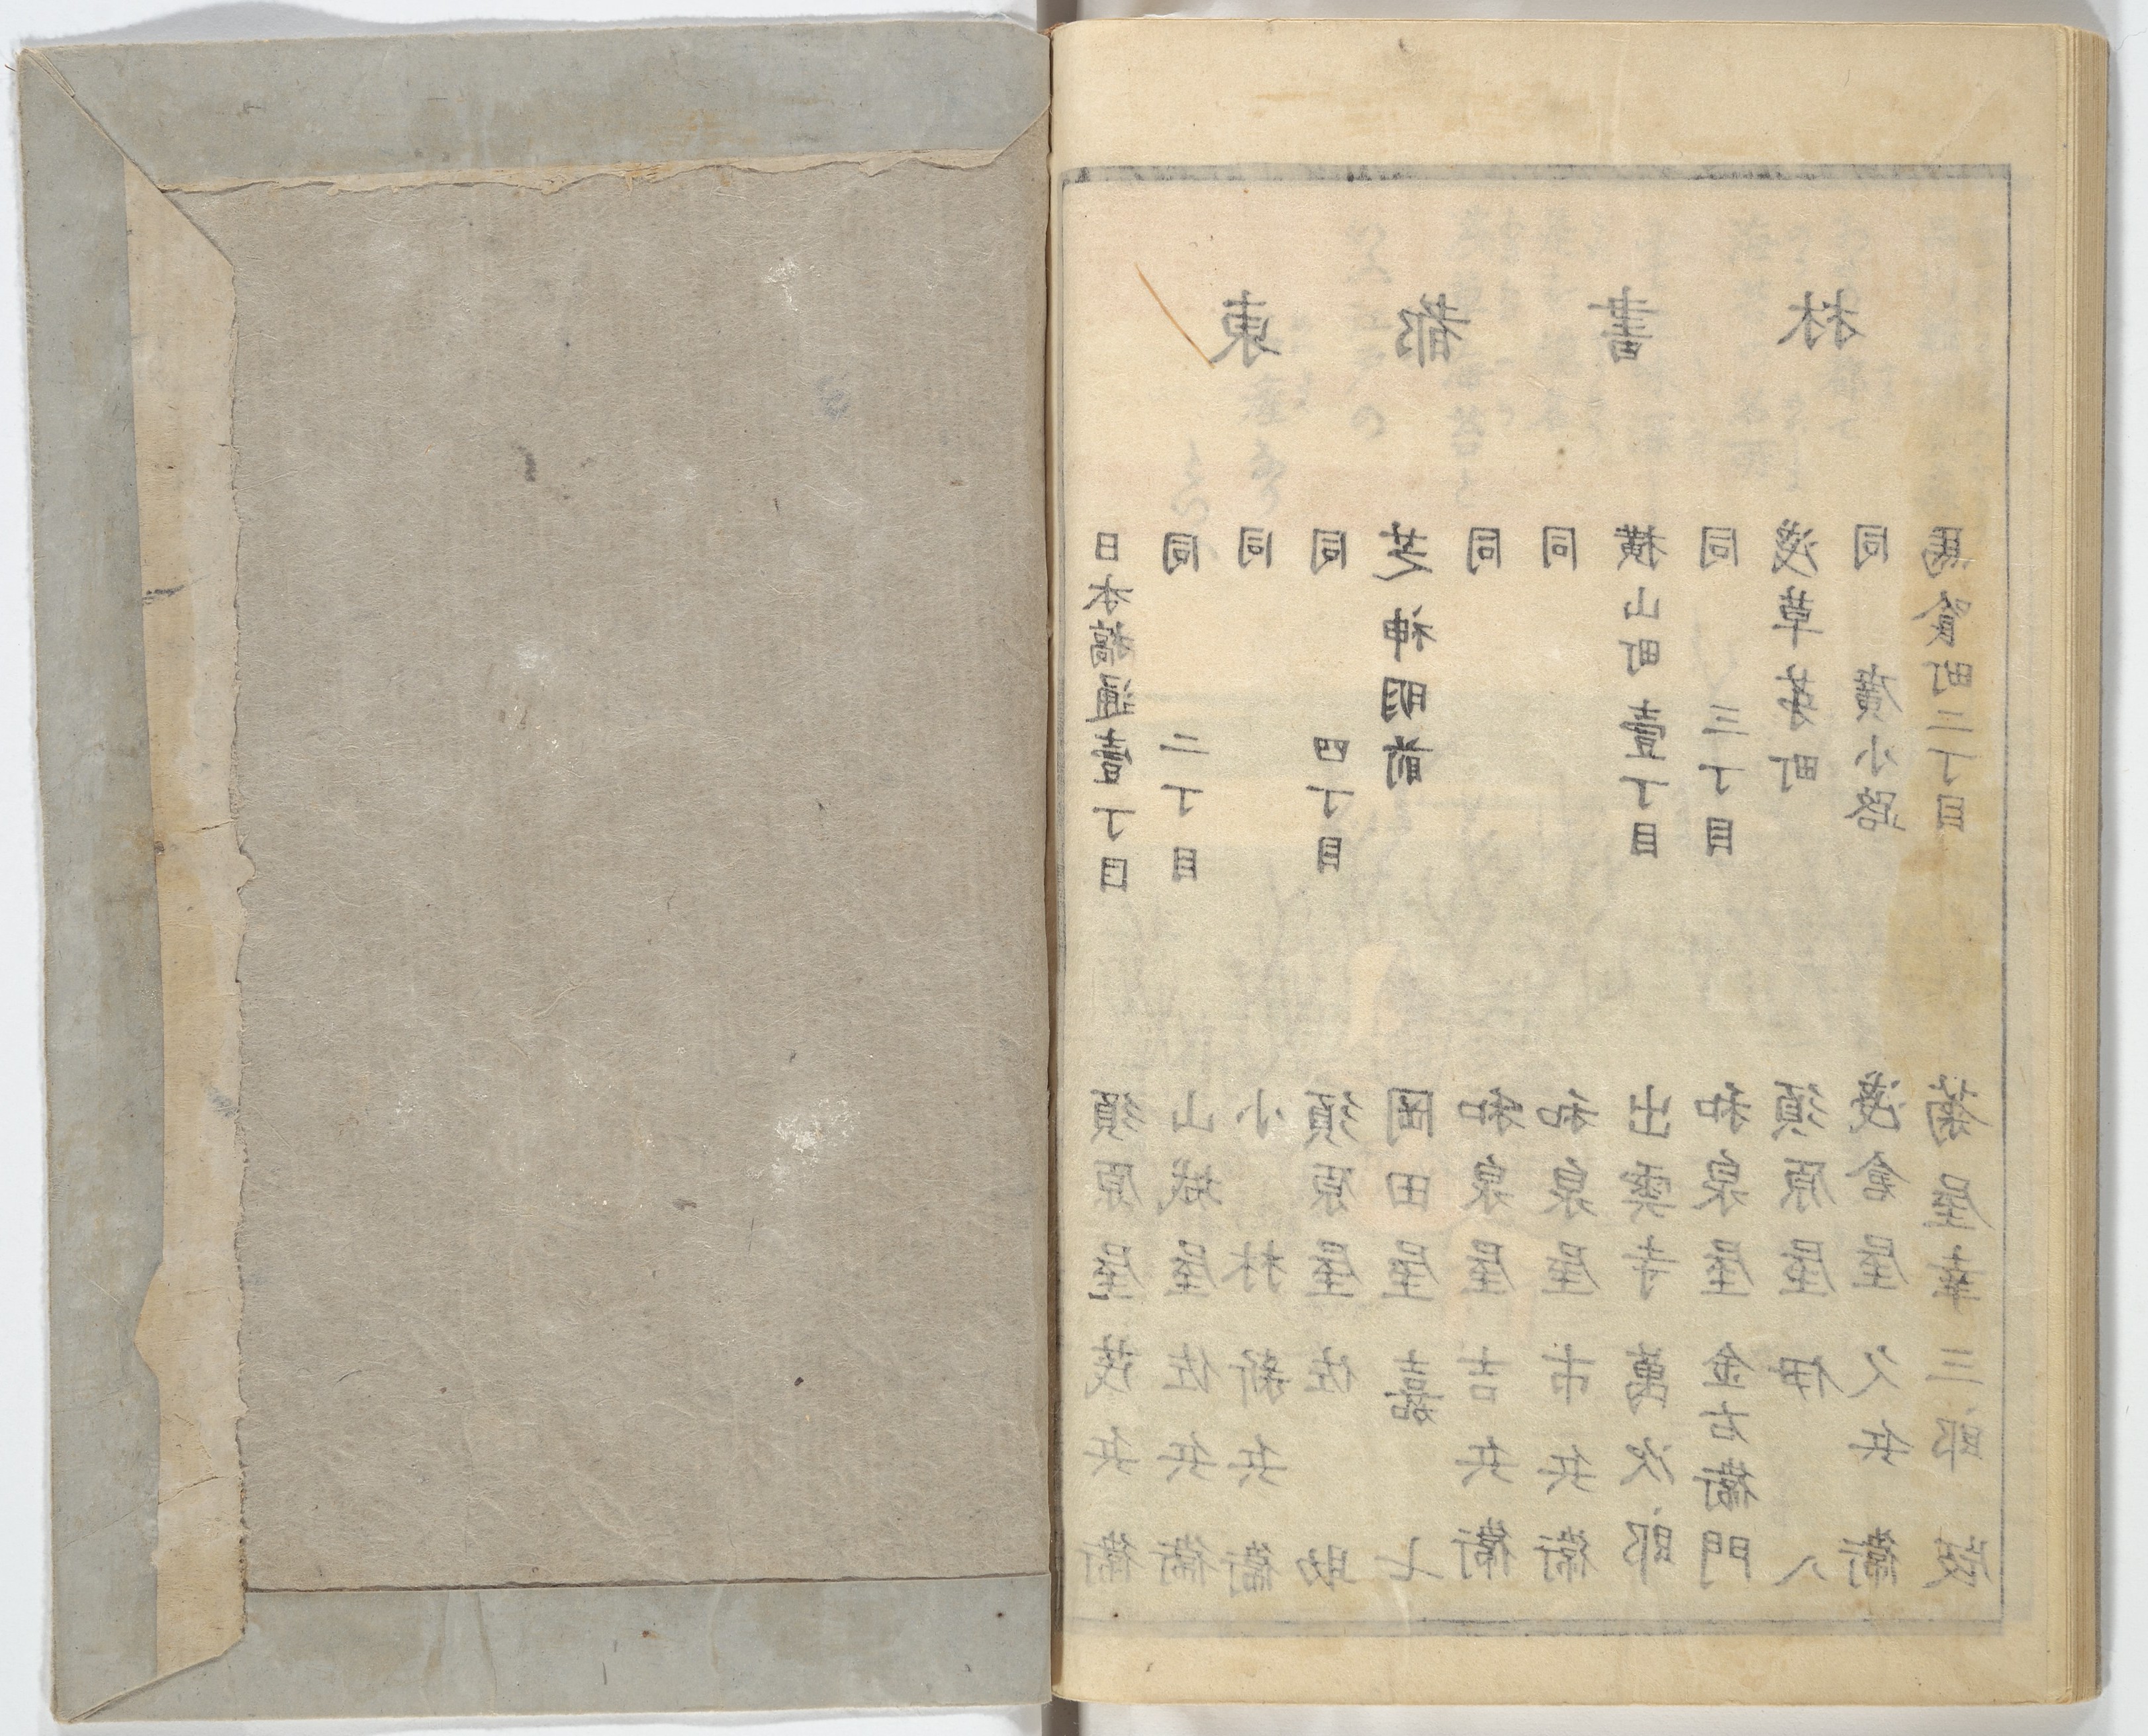 東都書林
日本橋通壹丁目 須原屋茂兵衛
同 二丁目 山城屋佐兵衛
同 小林新兵衛
同 四丁目 須原屋佐助
芝神明前 岡田屋嘉七
同 和泉屋吉兵衛
同 和泉屋市兵衛
横山町壹丁目 出雲寺萬次郎
同 三丁目 和泉屋金右衛門
淺草茅町 須原屋伊八
同 廣小路 淺倉屋久兵衛
馬喰町二丁目 菊屋幸三郎版